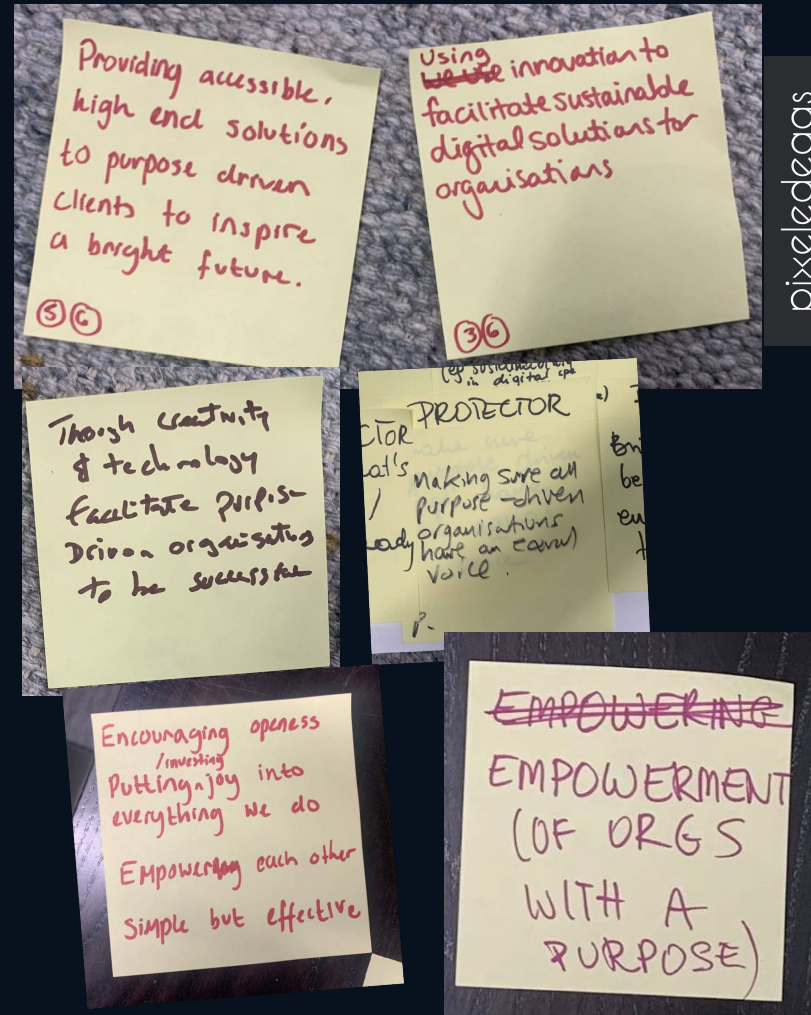 Providing accessible,
high end solutions
to purpose driven
clients to inspire
a bright future.
5 6
Using
we use innovation to
facilitate sustainable
digital solutions for
organisations
3 6
pixeledeggs
Though creativity
& technology
facilitate purpose
Driven organisations
to be successful
in digital
PROTECTOR
CTOR
at's
making sure all
purpose-driven
organisations
have an equal
voice.
P.
be
Encouraging openess
/investing
Putting ^ joy into
everything we do
Empowering each other
Simple but effective
EMPOWERING
EMPOWERMENT
(OF ORGS
WITH A
PURPOSE)